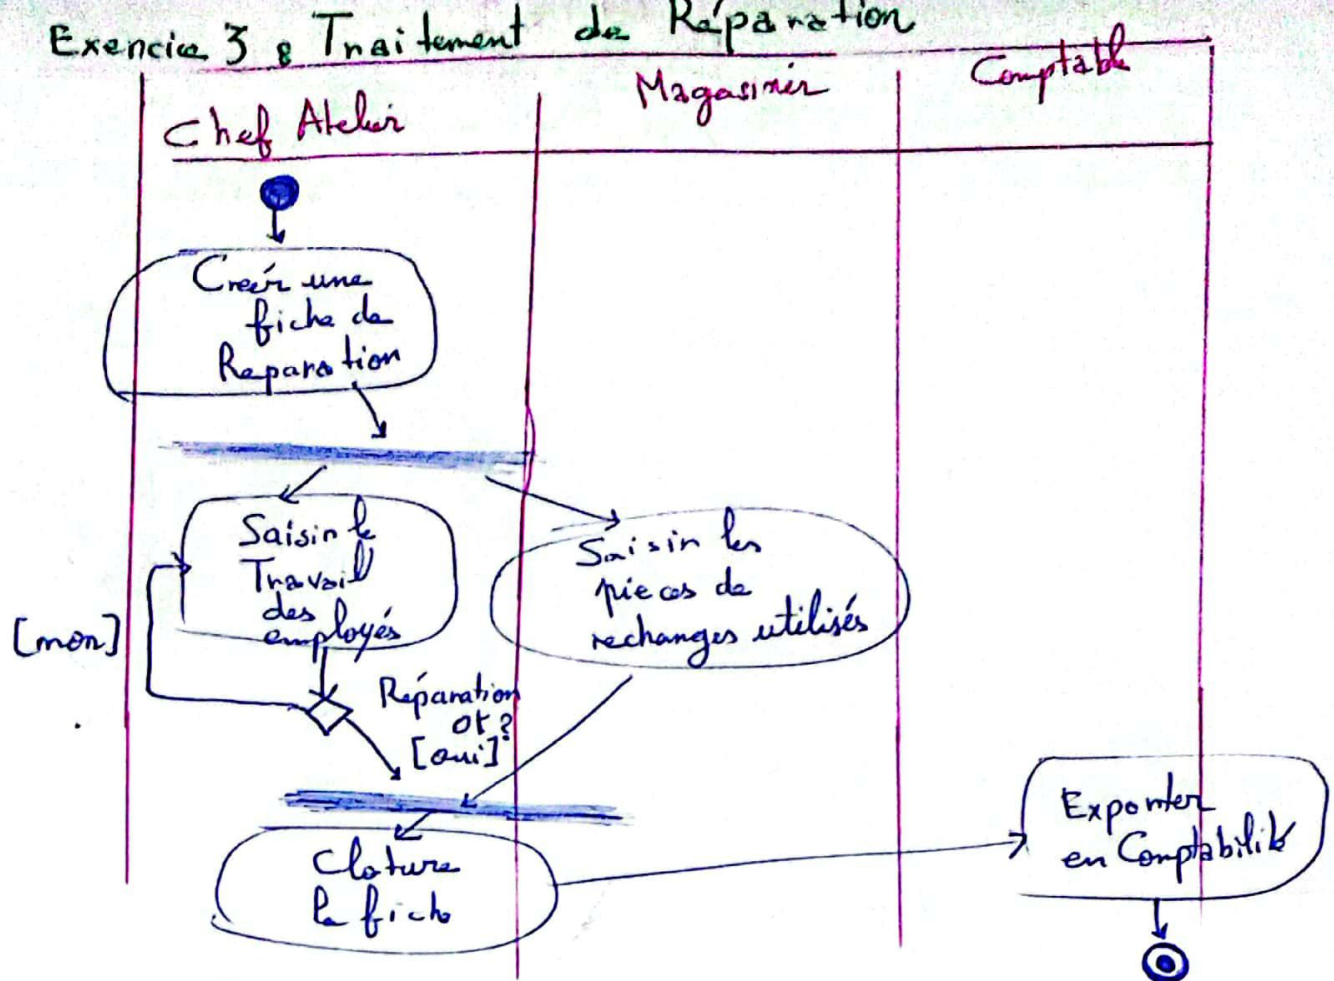 Exercice 3 : Traitement de Réparation
Chef Atelier
Magasinier
Comptable
Creér une
fiche de
Reparation
Saisir le
Travail
des
employés
Saisir les
pieces de
rechanges utilisés
[non]
Réparation
ok?
[oui]
Cloture
la fiche
Exporter
en Comptabilité